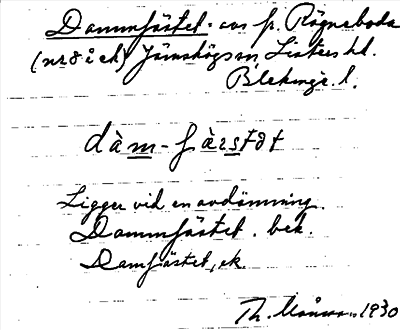 Dammfästet. avs p. Rågneboda
(nr 8 i ek) Jämshögs sn, Listers hd.
Blekinge l.
dàm-fàstət
Ligger vid en avdämning.
Dammfästet. bek.
Damfästet, ek.
Th. 1930